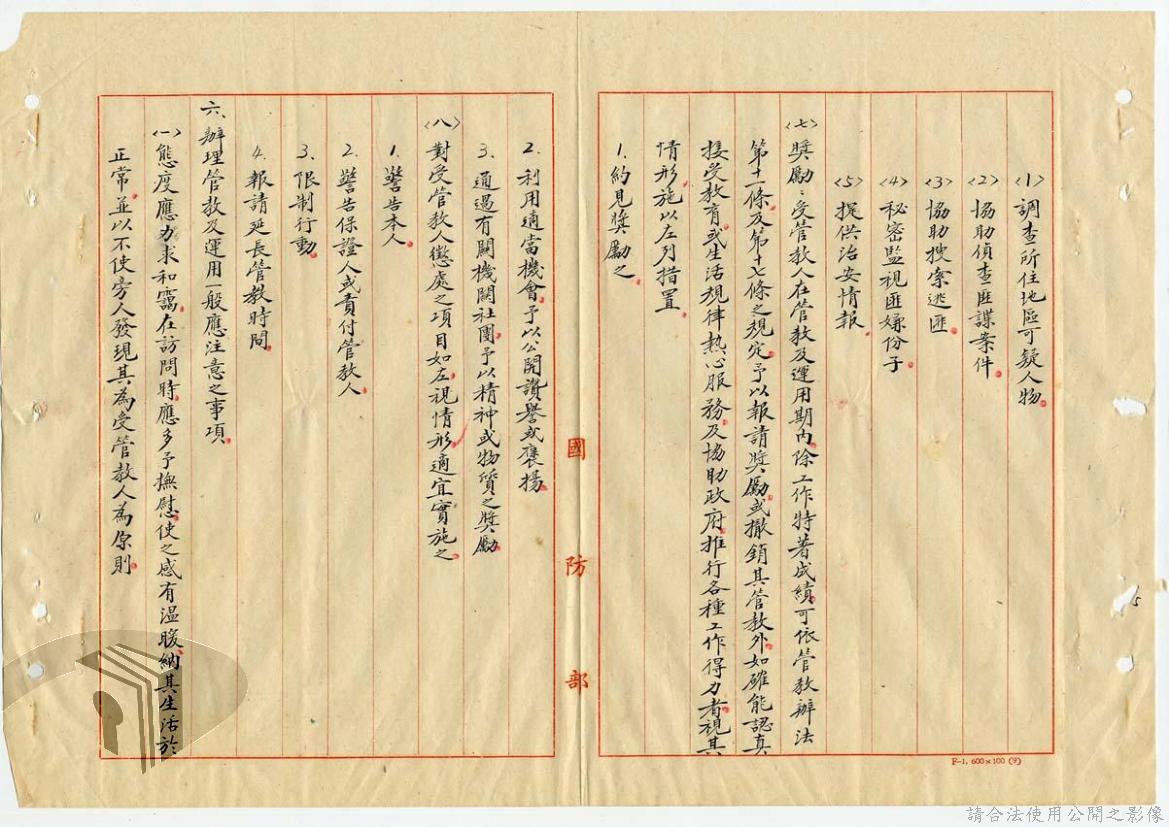 〈1〉調查所住地區可疑人物。
〈2〉協助偵查匪諜案件。
〈3〉協助搜索逃匪。
〈4〉秘密監視匪嫌份子。
〈5〉提供治安情報。
〈七〉獎勵：受管教人在管教及運用期內，除工作特著成績，可依管教辦法
第十一條，及第十七條之規定，予以報請獎勵，或撤銷其管教外，如確能認真
接受教育或生活規律熱心服務，及協助政府，推行各種工作得力者，視其
情形，施以左列措置。
1.約見獎勵之。
2.利用適當機會，予以公開讚譽或褒揚。
3.通過有關機關社團，予以精神或物質之獎勵。
〈八〉對受管教人懲處之項目如左，視情形適宜實施之。
1.警告本人。
2.警告保證人或責付管教人。
3.限制行動。
4.報請延長管教時間。
六、辦理管教及運用一般應注意之事項。
〈一〉態度應力求和靄，在訪問時，應多予撫慰，使之感有溫暖，納其生活於
正常，並以不使旁人發現其為受管教人為原則。
國防部
F-1, 600×100 (9)
5
請合法使用公開之影像